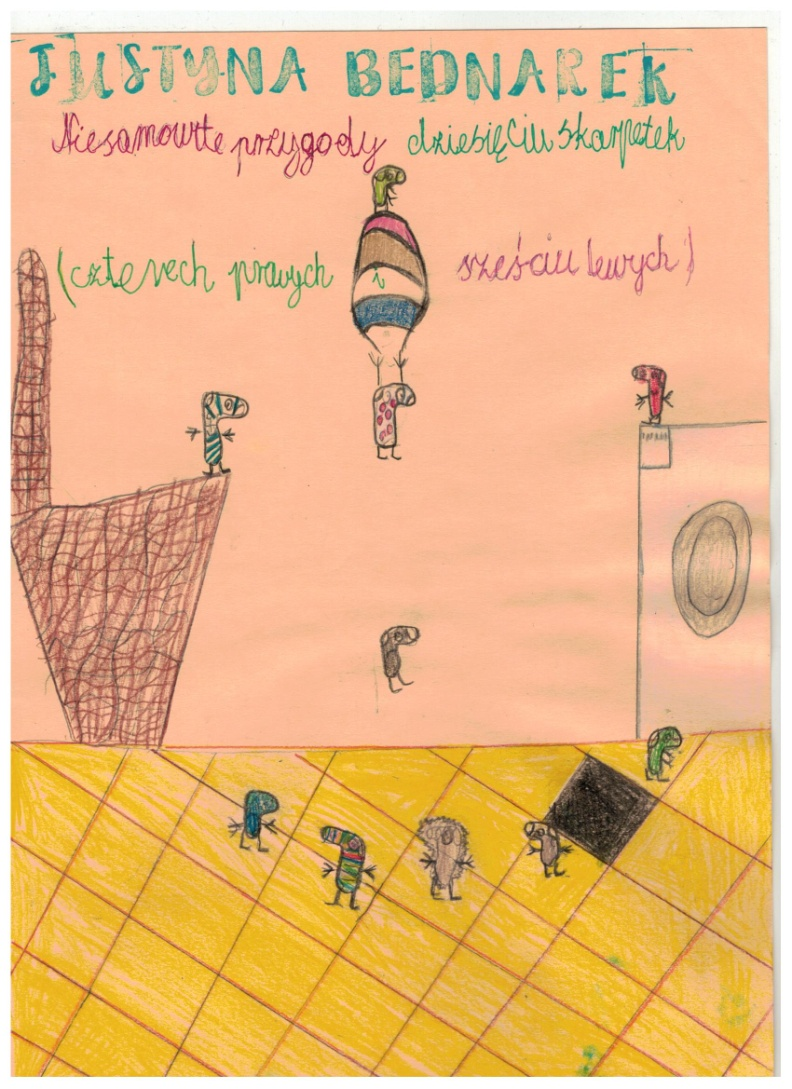 JUSTYNA BEDNAREK
Niesamowite przygody dziesięciu skarpetek
(czterech prawych i sześciu lewych)